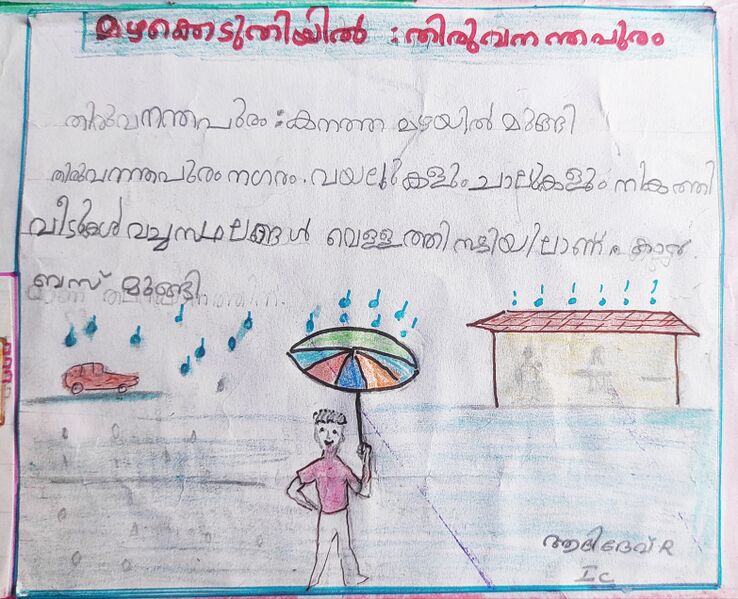 മഴക്കെടുതിയിൽ : തിരുവനന്തപുരം
തിരുവനന്തപുരം : കനത്ത മഴയിൽ മുങ്ങി
തിരുവനന്തപുരം നഗരം. വയലുകളും ചാലുകളും നികത്തി
വീടുകൾ വച്ച സ്ഥലങ്ങൾ വെള്ളത്തിനടിയിലാണ്. കാർ.
ബസ് മുങ്ങി
ആദിദേവ് R
I C